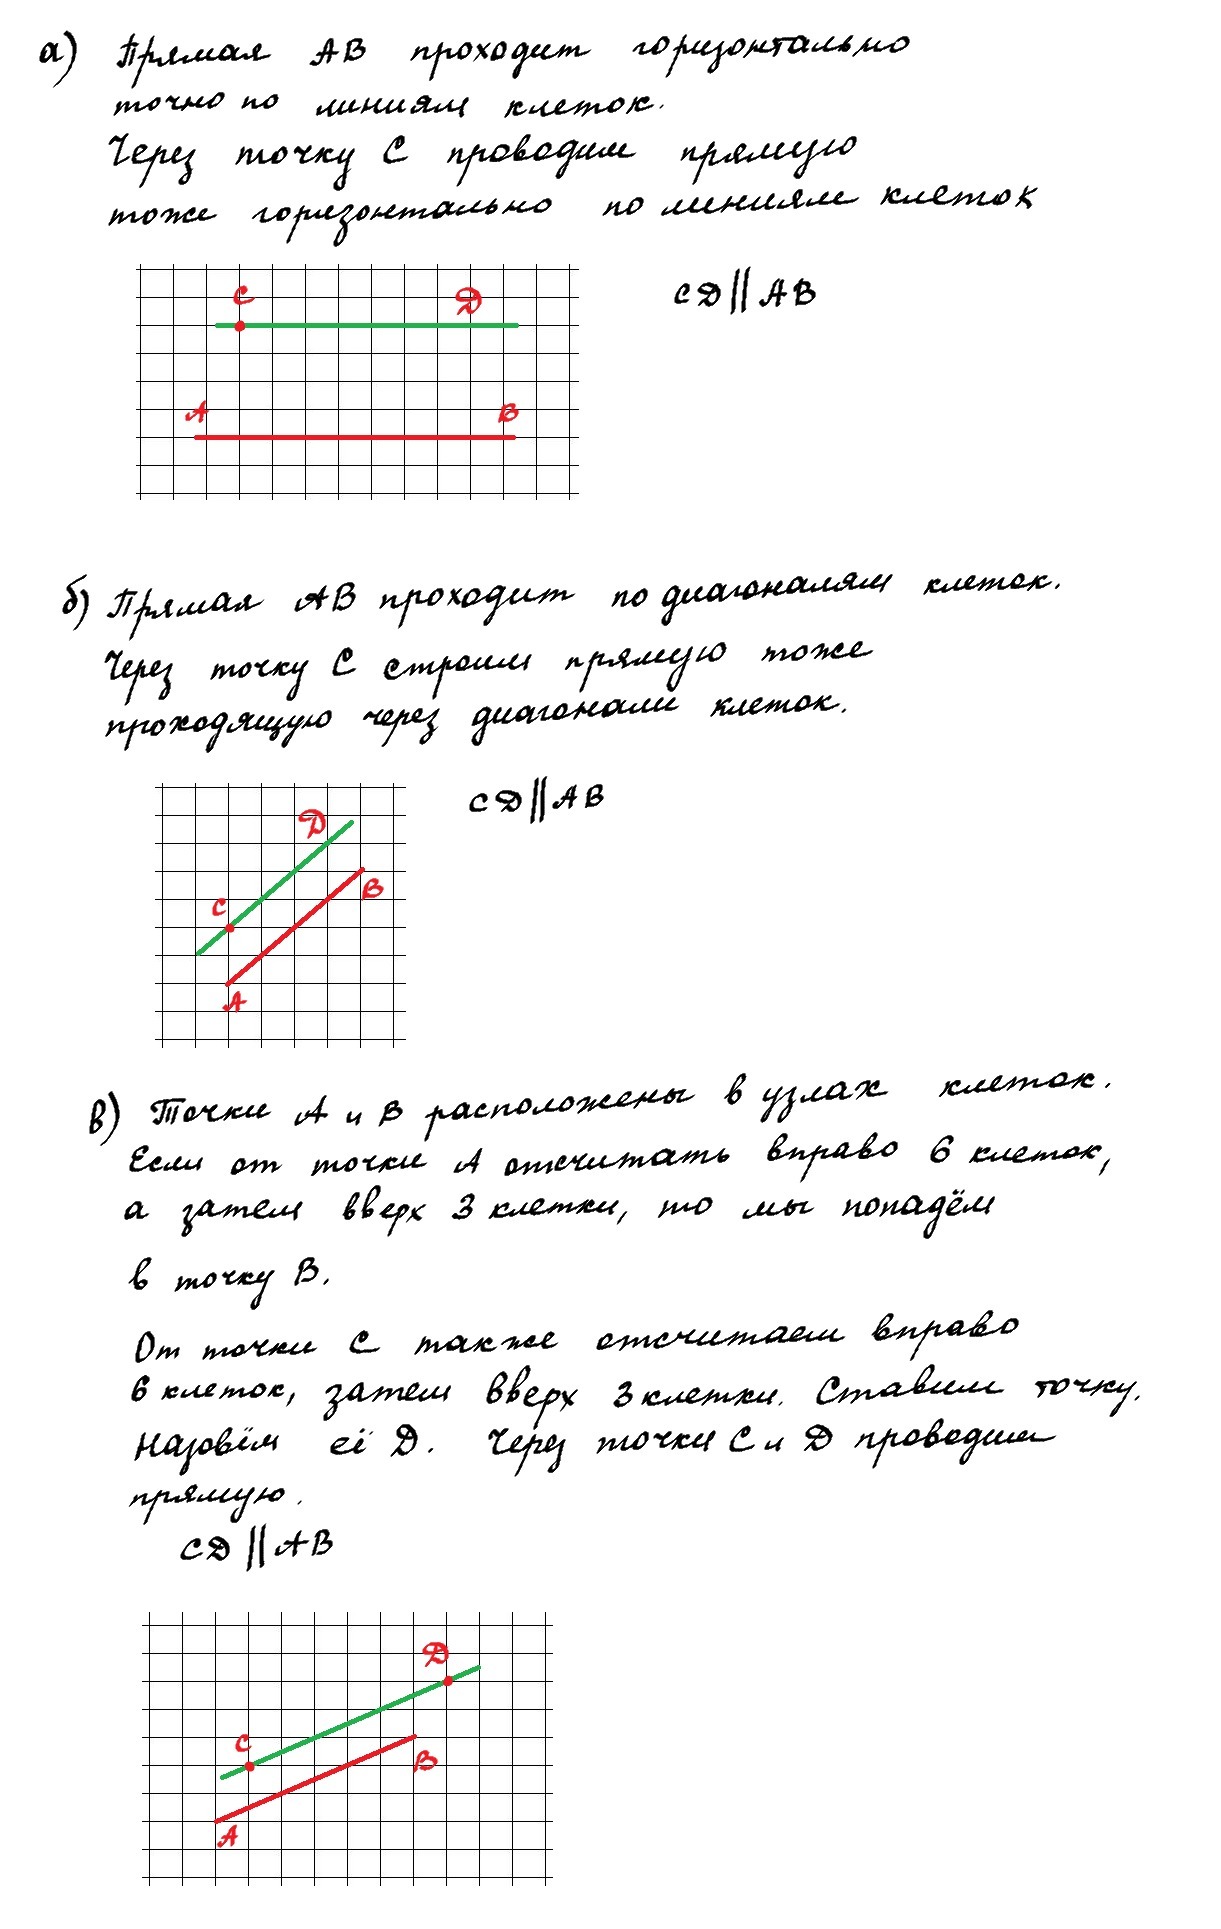 а) Прямая АВ проходит горизонтально
точно по линиям клеток.
Через точку С проводим прямую
тоже горизонтально по линиям клеток
С D
CD || AB
А В
б) Прямая АВ проходит по диагоналям клеток.
Через точку С строим прямую тоже
проходящую через диагонали клеток.
CD || AB
D
С В
А
в) Точки А и В расположены в узлах клеток.
Если от точки А отсчитать вправо 6 клеток,
а затем вверх 3 клетки, то мы попадём
в точку В.
От точки С также отсчитаем вправо
6 клеток, затем вверх 3 клетки. Ставим точку.
Назовём её D. Через точки С и D проводим
прямую.
CD || AB
D
С
В
А